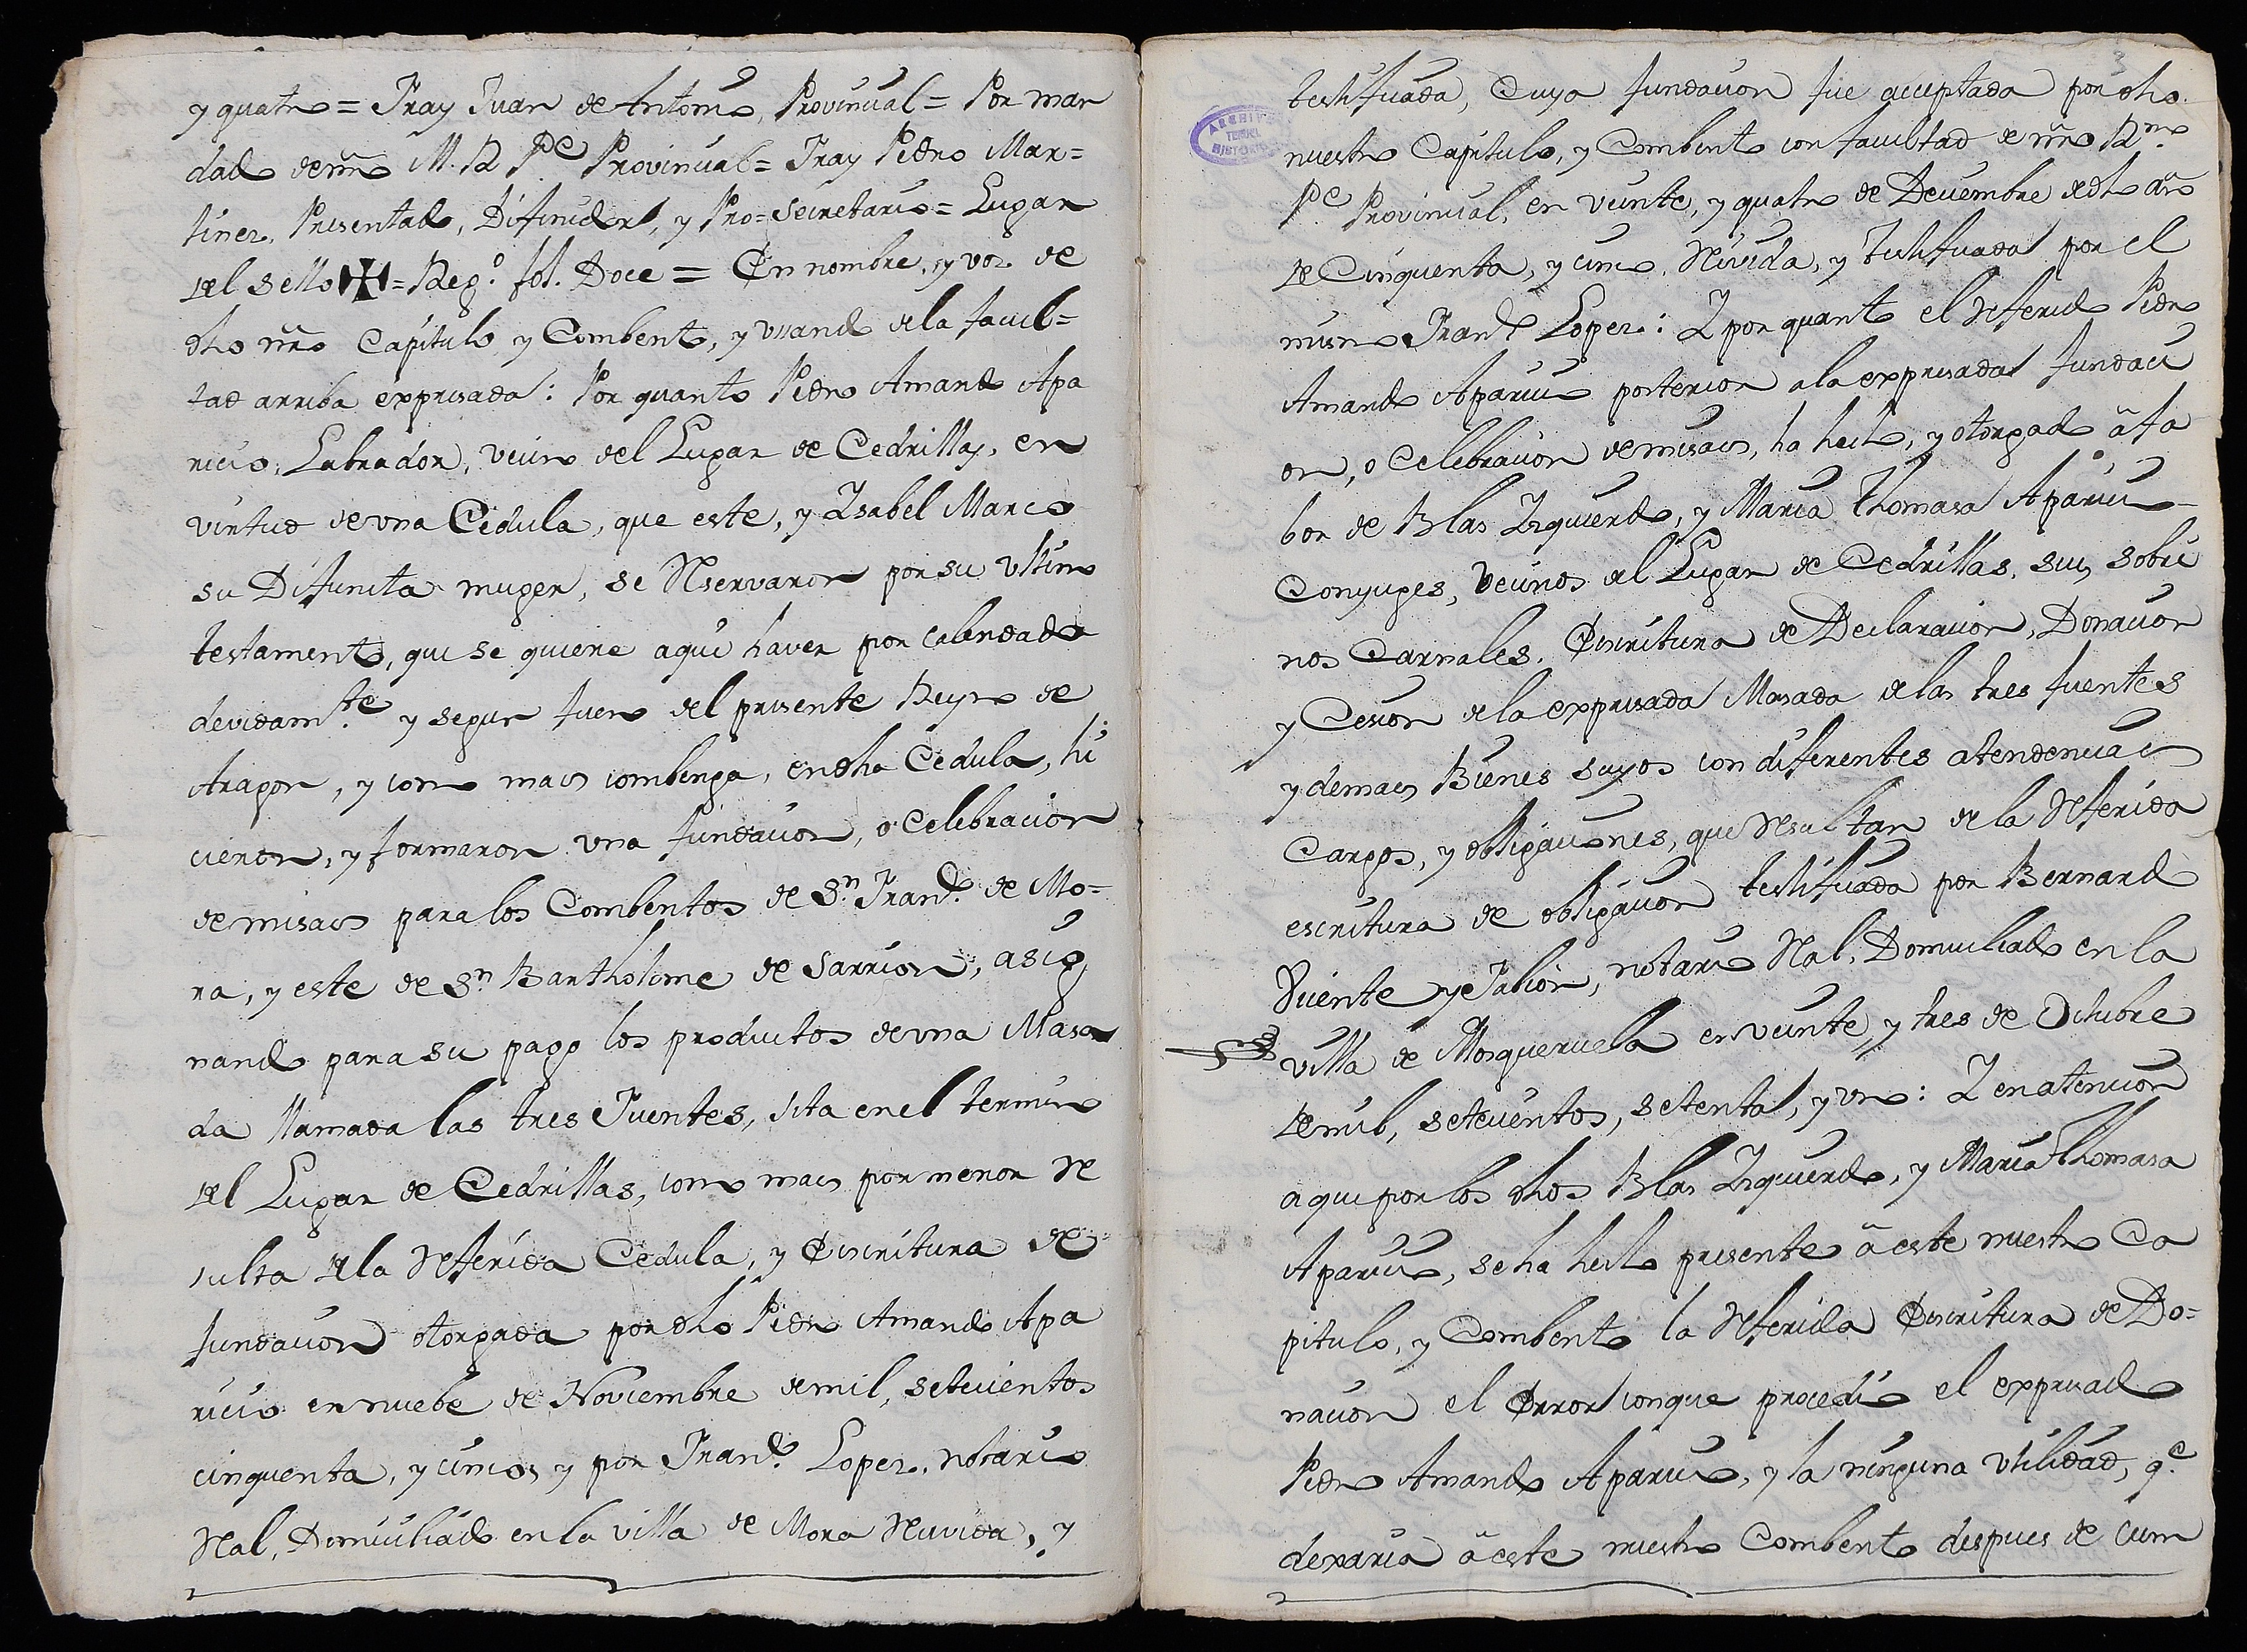 y quatro = Fray Juan de Antonio, Provincial = Por man
dado de nrõ M. R. Pe Provincial = Fray Pedro Mar=
tinez, Presentado, Difinidor, y Pro=Secretario = Lugar
del sello ✠ = Rego. fol. Doce = En nombre, y voz de
dho nrõ Capitulo, y Combento, y usando de la facul=
tad arriba expresada: Por quanto Pedro Amando Apa
ricio, Labrador, vecino del Lugar de Cedrillas, en
virtud de vna Cedula, que este, y Ysabel Marco
su Difunta muger, se Reservaron por su vltimo
testamento, que se quiere aqui haver por calendado
devidamte. y segun fuero del presente Reyno de
Aragon, y como mas combenga, en dha Cedula, hi
cieron, y formaron vna fundacion, o Celebracion
de misas para los Combentos de Sn. Frando. de Mo=
ra, y este de Sn. Bartholome de Sarrion, asig
nando para su pago los productos de vna Masa
da llamada las tres Fuentes, sita en el termino
del Lugar de Cedrillas, como mas por menor Re
sulta de la Referida Cedula, y Escritura de
fundacion otorgada por dho Pedro Amando Apa
ricio en nuebe de Noviembre de mil, setecientos
cinquenta, y cinco, y por Frando. Lopez, notario
Real, Domiciliado en la villa de Mora Recivida, y
3
testificada, Cuya fundacion fue acceptada por dho.
ARCHIVO
HISTORICO
TERUEL
nuestro Capitulo, y Combento con facultad de nrõ Rmo.
Pe Provincial, en veinte, y quatro de Deciembre de dho año
de Cinquenta, y cinco, Recivida, y testificada por el
mismo Frando Lopez: Y por quanto el Referido Pedro
Amando Aparicio posterior a la expresada fundaci
on, o Celebracion de misas, ha hecho, y otorgado â fa
bor de Blas Yzquierdo, y Maria Thomasa Aparicio
Conyuges, vecinos del Lugar de Cedrillas, sus sobri
nos Carnales. Escritura de Declaracion, Donacion
y Cesion de la expresada Masada de las tres fuentes
y demas Bienes suyos con diferentes atendencias
Cargos, y obligaciones, que Resultan de la Referida
escritura de obligacion testificada por Bernardo
Vicente y Talion, notario Real, Domiciliado en la
villa de Mosqueruela en veinte, y tres de Octubre
de mil, setecientos, setenta, y vno: Y en atencion
a que por los dhos Blas Yzquierdo, y Maria Thomasa
Aparicio, se ha hecho presente â este nuestro Ca
pitulo, y Combento la Referida Escritura de Do=
nacion el Error con que procedió el expresado
Pedro Amando Aparicio, y la ninguna vtilidad, qe.
dexaria â este nuestro Combento despues de cum